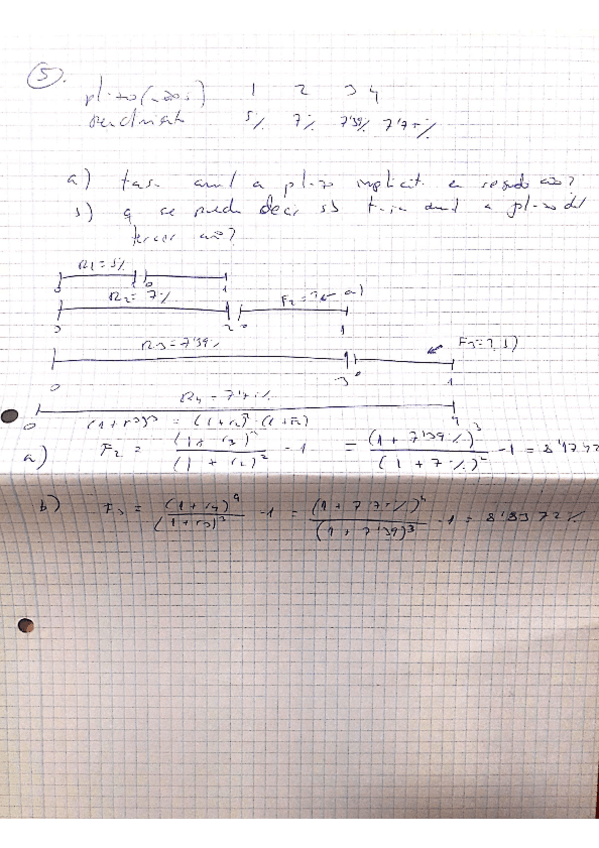 5).
plazo (años) 1 2 3 4
Rendimiento 5% 7% 7'39% 7'75%
a) tasa anual a plazo implicita en segundo año?
b) q se puede decir sb tasa anual a plazo del
tercer año?
R1 = 5%
0 1 0 1
R2 = 7% F2 = ? a)
0 2 0 1
R3 = 7'39% F3 = ? b)
0 3 0 1
R4 = 7'75%
0 4
(1+r3)³ = (1+r2)² · (1+F2)
a) F2 = (1+r3)³ / (1+r2)² - 1 = (1+7'39%)³ / (1+7%)² - 1 =
b) F3 = (1+r4)⁴ / (1+r3)³ - 1 = (1+7'75%)⁴ / (1+7'39)³ - 1 = 8'8372%